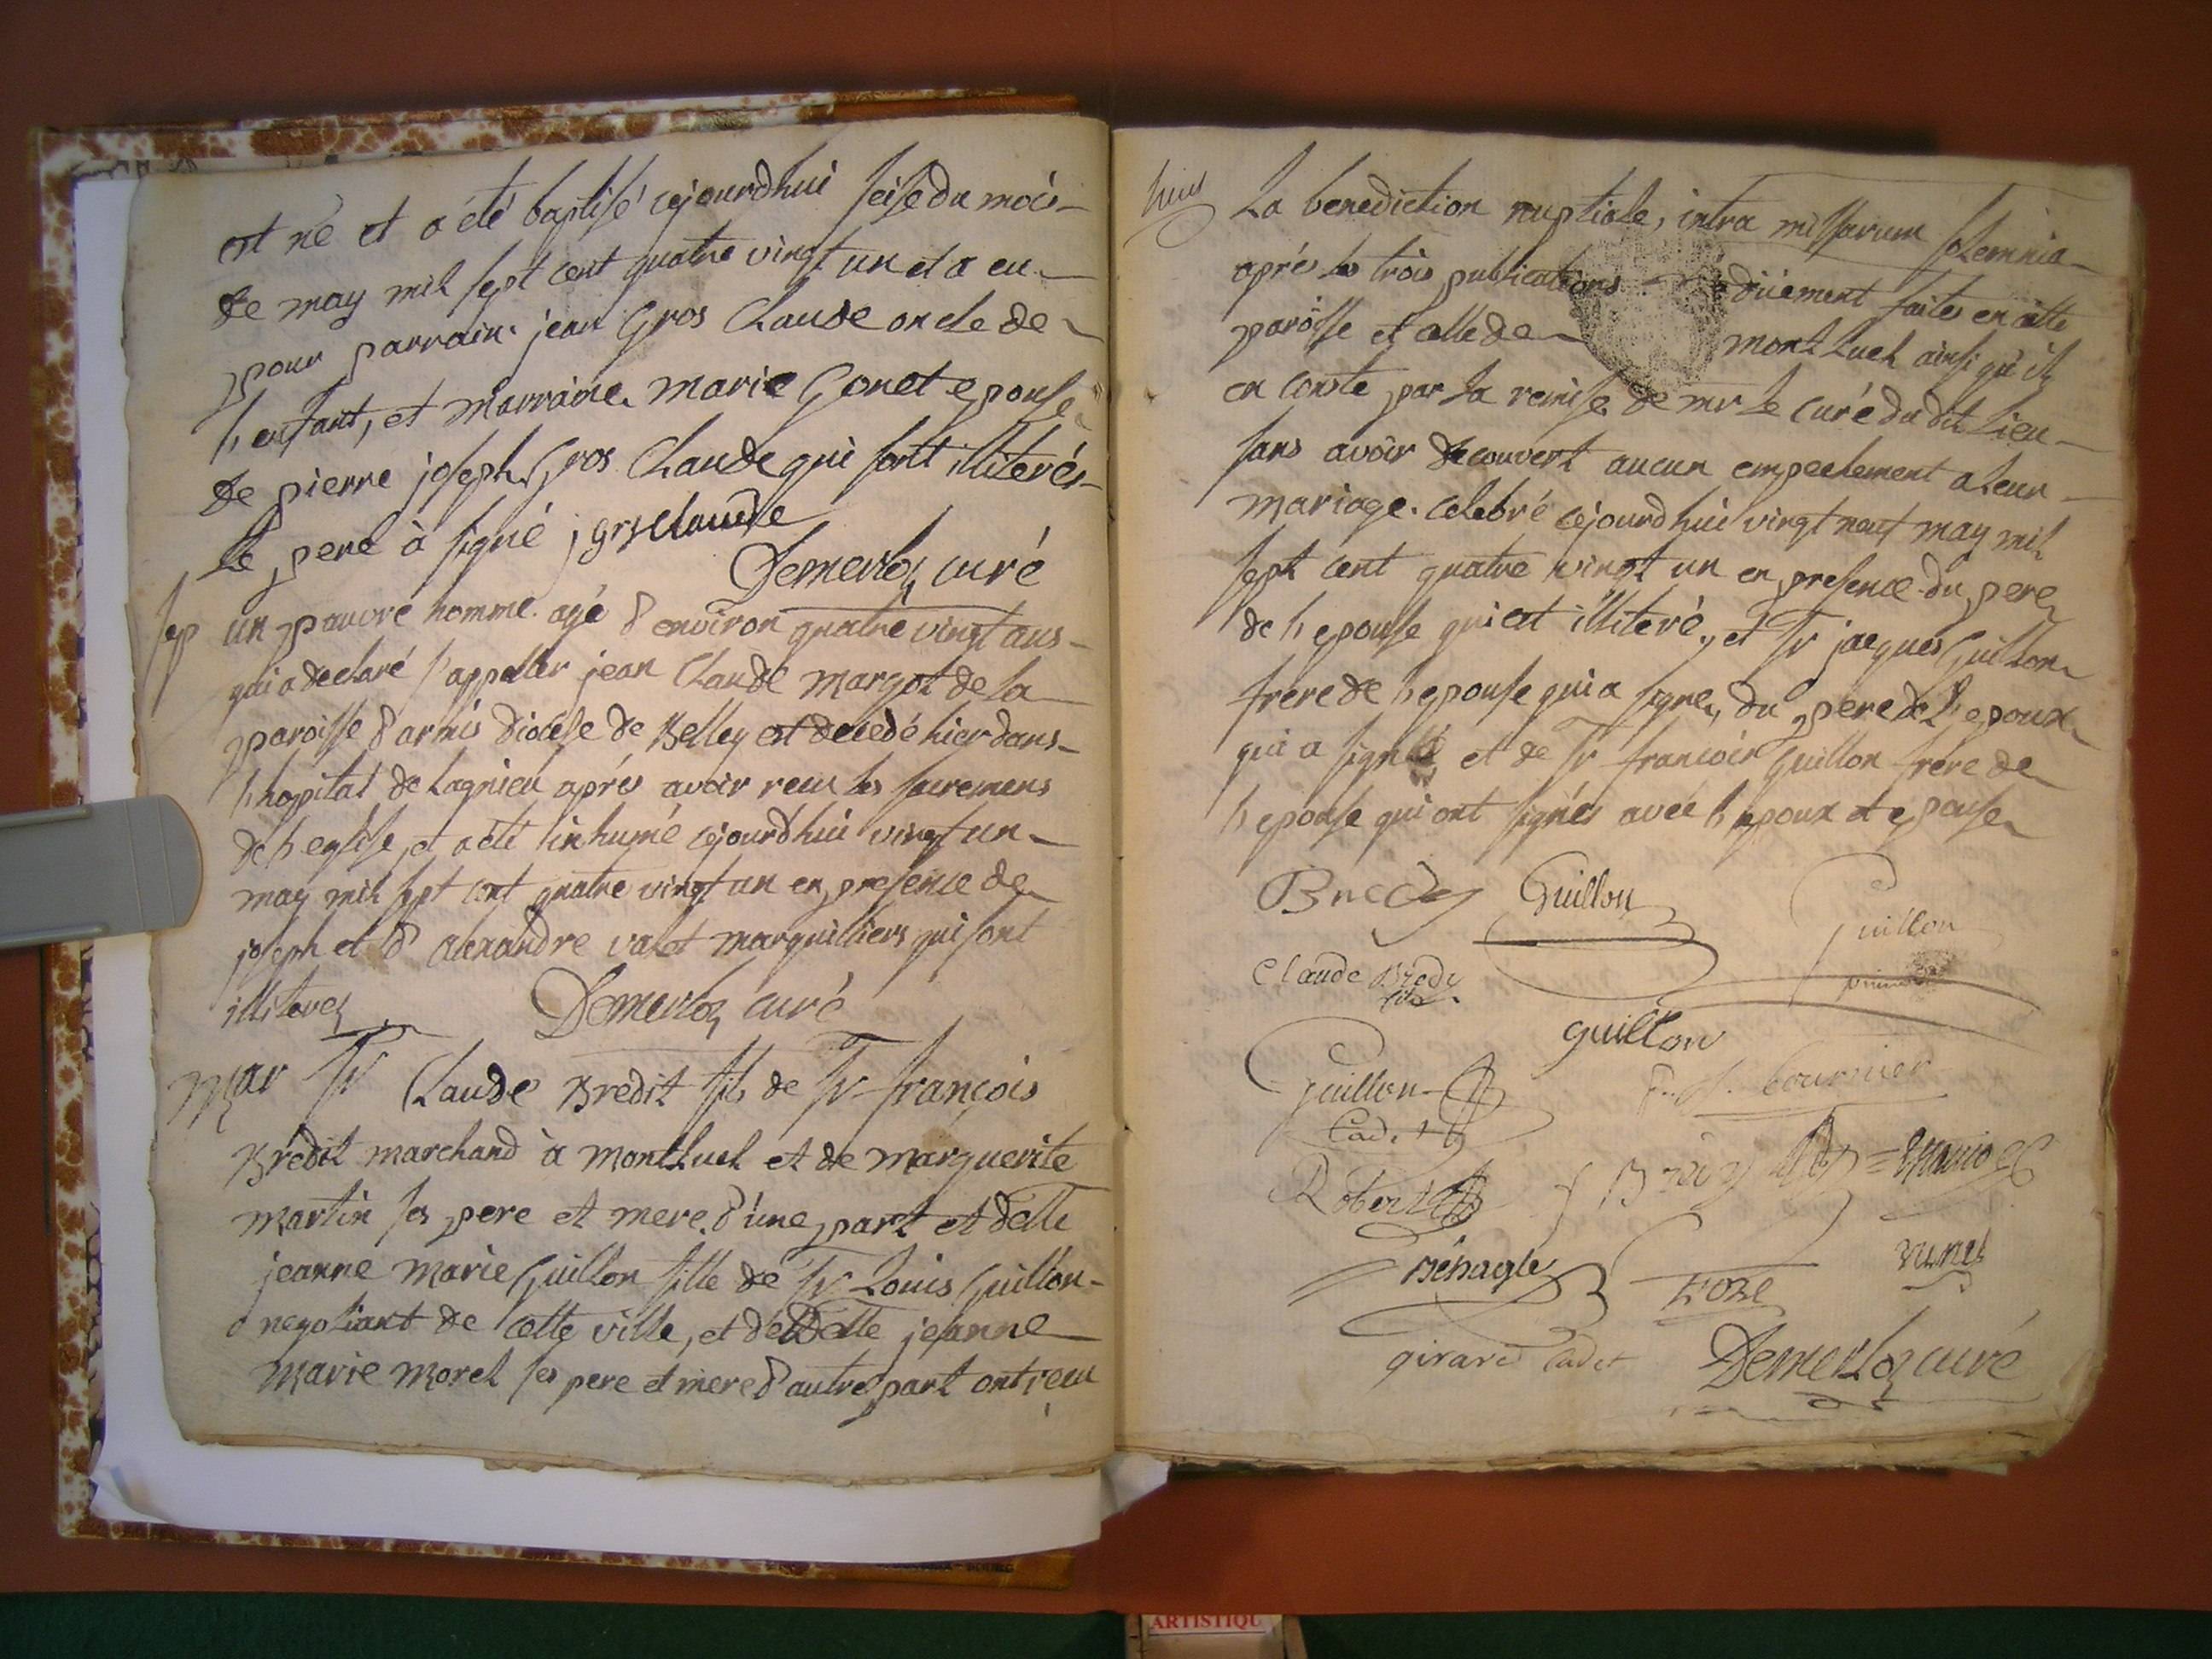 est né et a été baptisé cejourdhui seise du mois
de may mil sept cent quatre vingt un et a eu
pour parrain jean Gros Claude oncle de
l'enfant, et marraine marie Gonet epouse
de pierre joseph Gros Claude qui sont illiterés
le pere à signé j grosclaude
Demerloz curé
sep un pauvre homme agé d'environ quatre vingt ans
qui a declaré s'appeller jean Claude margot de la
paroisse d'armis diocese de Belley est decedé hier dans
l'hopital de Lagnieu aprés avoir recu les sacremens
de l'eglise, et a été inhumé cejourdhui vingt un
may mil sept cent quatre vingt un en presence de
joseph et d'alexandre valet marguilliers qui sont
illiterez Demerloz curé
Mar Sr Claude Bredit fils de Sr françois
Bredit marchand à montluel et de marguerite
martin ses pere et mere d'une part et delle
jeanne marie Guillon fille de Sr Louis Guillon
negotiant de cette ville, et de delle jeanne
marie morel ses pere et mere d'autre part ont recu
La benediction nuptiale, intra missarum solemnia
aprés les trois publications düement faites en cette
paroisse et celle de montluel ainsi qu'il
en conste par la remise de mr le curé du dit lieu
sans avoir decouvert aucun empechement a leur
mariage. celebré cejourdhui vingt neuf may mil
sept cent quatre vingt un en presence du pere
de l'epouse qui est illiteré, et Sr jacques Guillon
frere de l'epouse qui a signé, du pere de l'epoux
qui a signé et de Sr francois Guillon frere de
l'epouse qui ont signés avec l'epoux et epouse
Guillon Guillon
Claude Brédy
fils
guillon
Guillon
Cadet
fournier
Robert
Bénagle
girard Cadet Demerloz curé